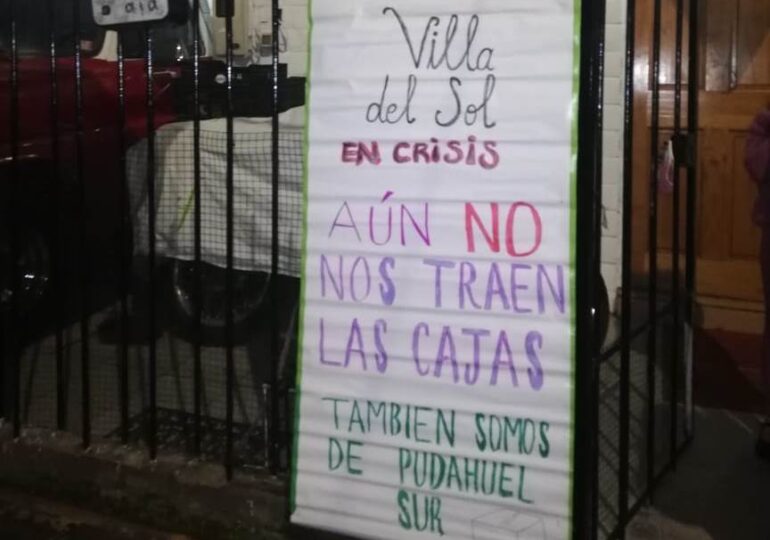 Villa
del Sol
EN CRISIS
AÚN NO
NOS TRAEN
LAS CAJAS
TAMBIEN SOMOS
DE PUDAHUEL
SUR